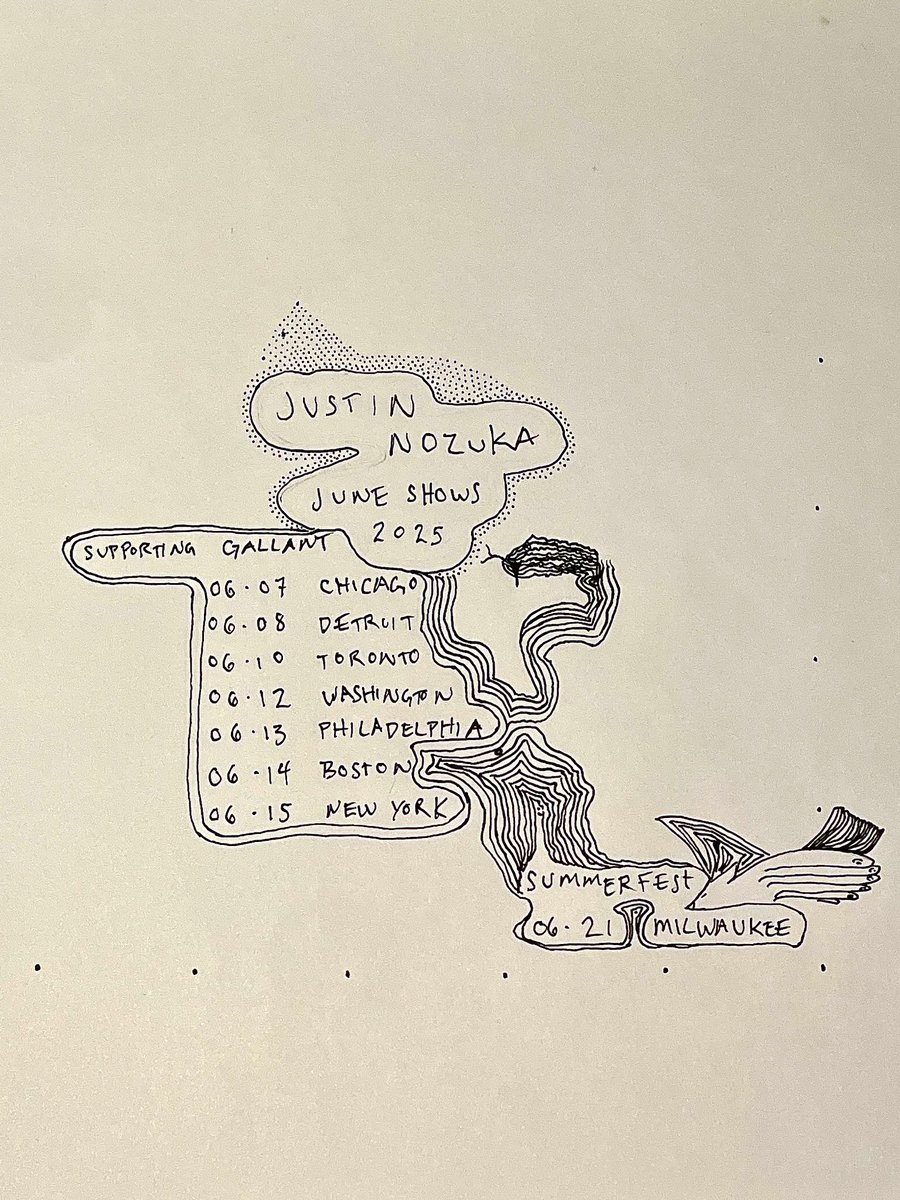 JUSTIN
NOZUKA
JUNE SHOWS
2025
SUPPORTING GALLANT
06.07 CHICAGO
06.08 DETRUIT
06.10 TORONTO
06.12 WASHINGTON
06.13 PHILADELPHIA
06.14 BOSTON
06.15 NEW YORK
SUMMERFEST
06.21 MILWAUKEE